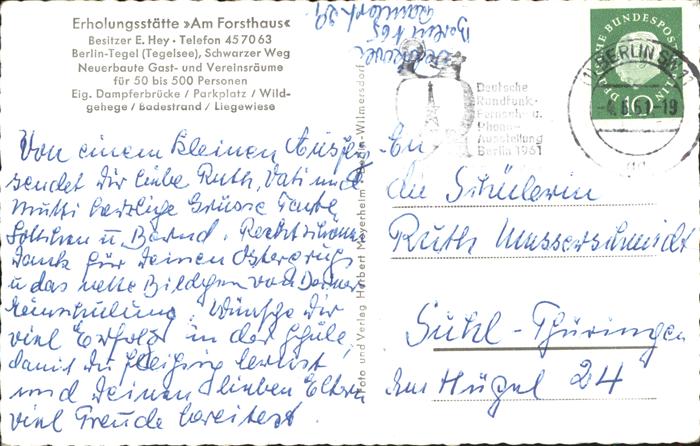 Erholungsstätte »Am Forsthaus«
Besitzer E. Hey · Telefon 45 70 63
Berlin-Tegel (Tegelsee), Schwarzer Weg
Neuerbaute Gast- und Vereinsräume
für 50 bis 500 Personen
Eig. Dampferbrücke / Parkplatz / Wild-
gehege / Badestrand / Liegewiese
Von einem kleinen Ausflug
sendet dir liebe Ruth, Vati und
Mutti herzliche Grüsse Tante
Lottchen u Bernd. Recht schönen
Dank für deinen Ostergruß
u das nette Bildchen von deiner
Einschulung. Wünsche dir
viel Erfolg in der Schule,
damit du fleißig lernst
und deinen lieben Eltern
viel Freude bereitest.
Foto und Verlag Herbert Meyerheim, Berlin-Wilmersdorf
Berlin N 65
Deutsche
Rundfunk-
Fernseh- u.
Phono-
Ausstellung
Berlin 1961
DEUTSCHE BUNDESPOST BERLIN
10
BERLIN SW
-4.6.61.-19
An
die Schülerin
Ruth Messerschmidt
Suhl - Thüringen
Am Hügel 24